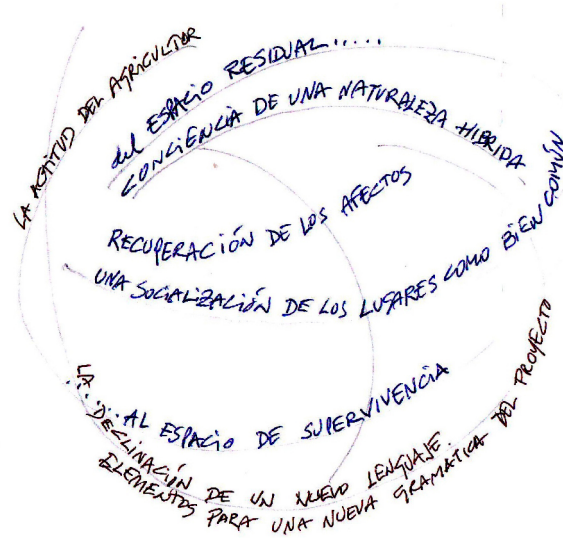 LA ACTITUD DEL AGRICULTOR
del ESPACIO RESIDUAL.....
CONCIENCIA DE UNA NATURALEZA HIBRIDA
RECUPERACIÓN DE LOS AFECTOS
UNA SOCIALIZACIÓN DE LOS LUGARES COMO BIEN COMÚN
......AL ESPACIO DE SUPERVIVENCIA
LA DECLINACIÓN DE UN NUEVO LENGUAJE.
ELEMENTOS PARA UNA NUEVA GRAMATICA DEL PROYECTO